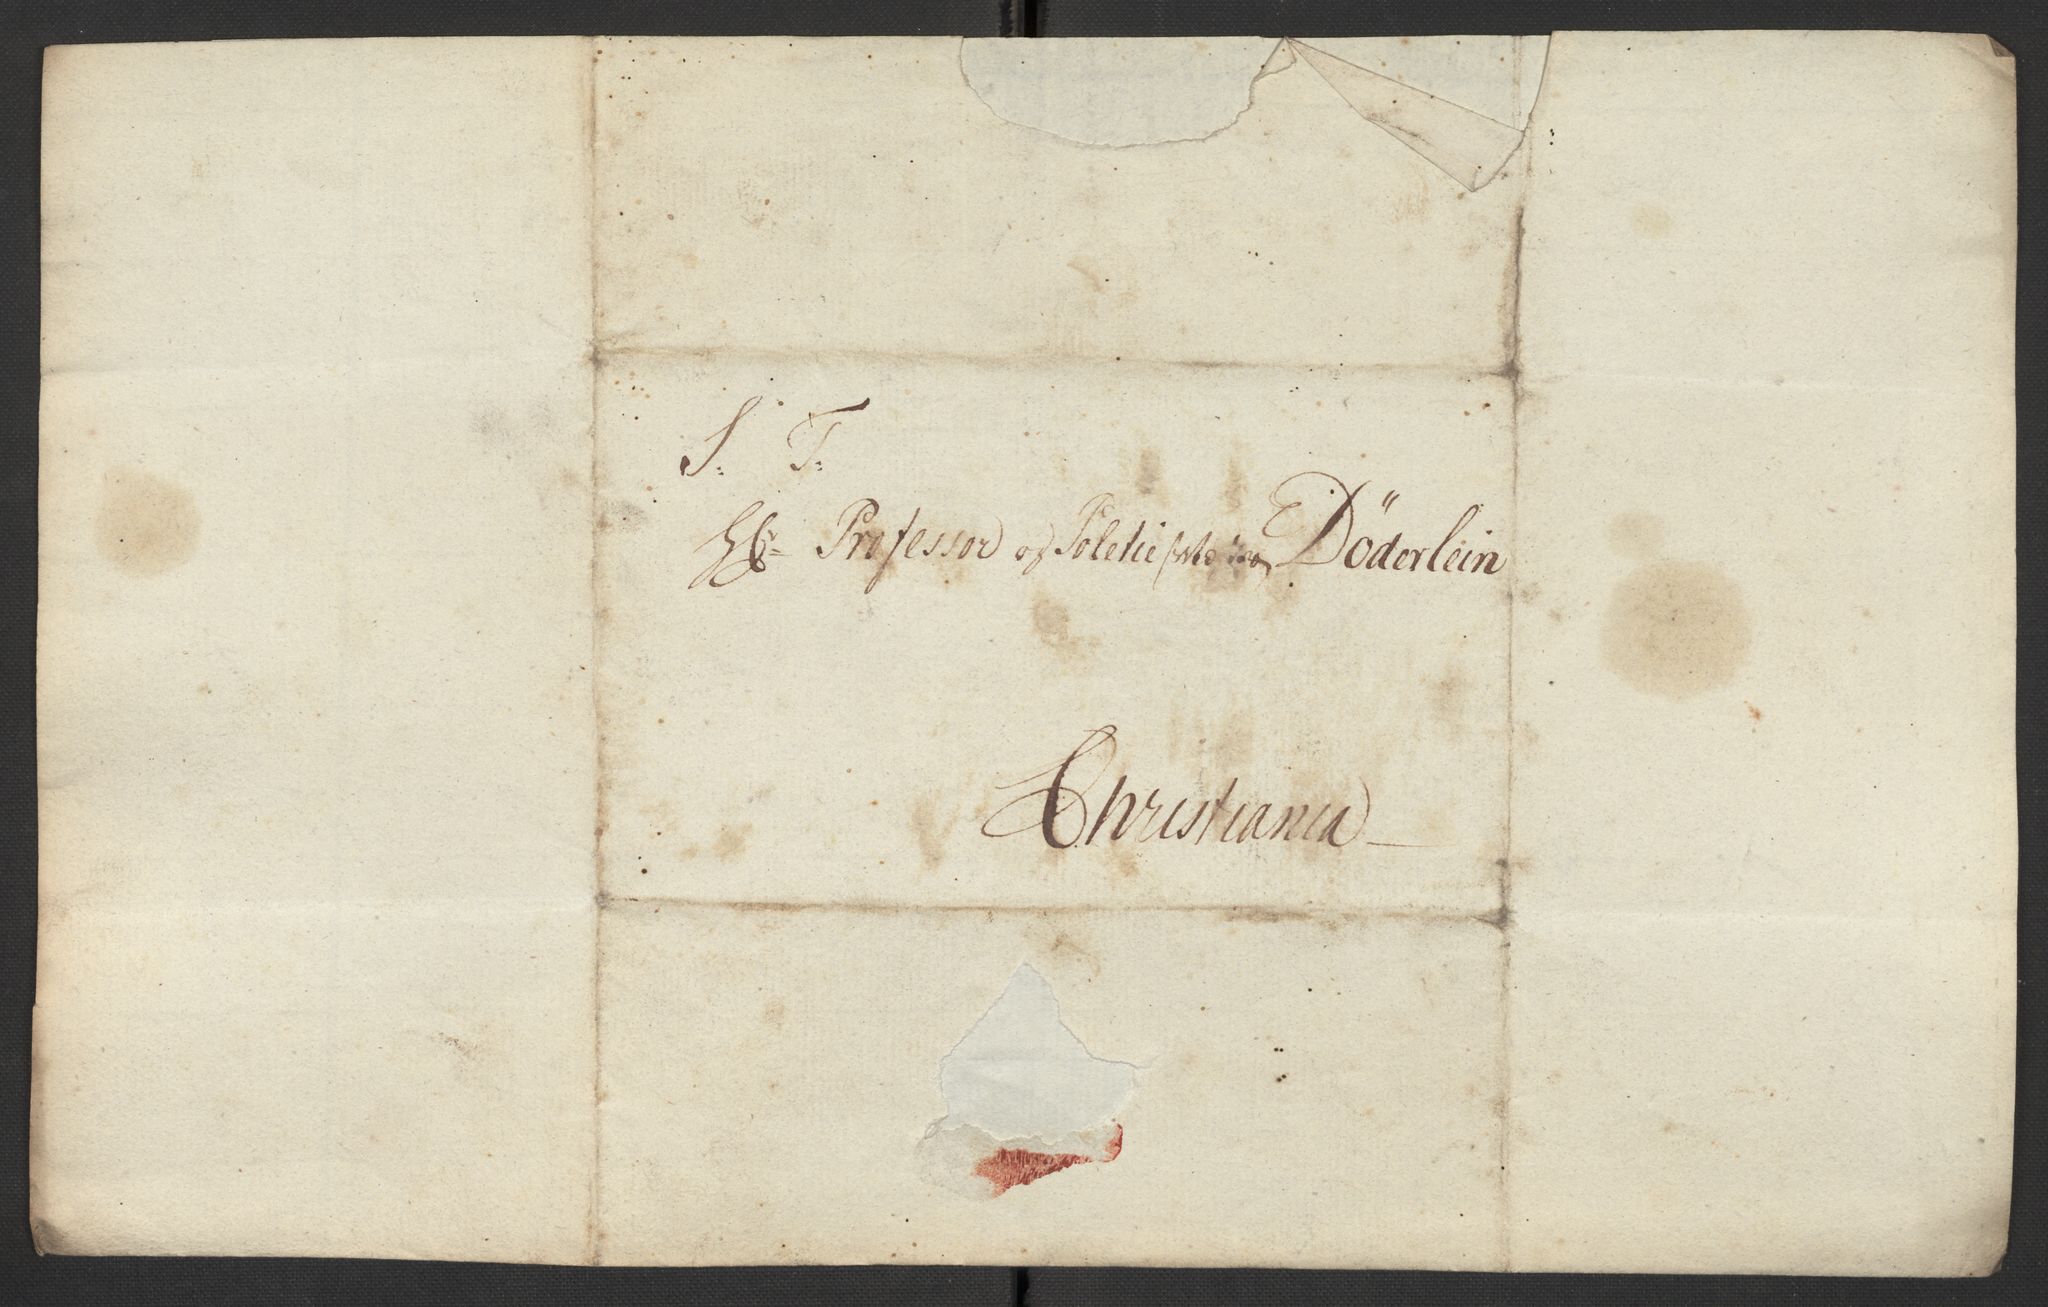 S: T:
Hr Professor og Politie Döderlein
Christiania